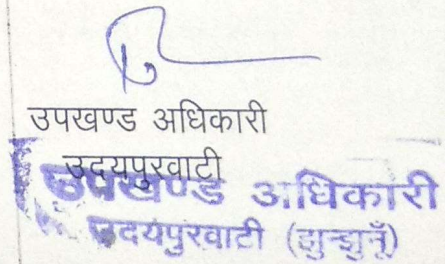 उपखण्ड अधिकारी
उदयपुरवाटी
उपखण्ड अधिकारी
उदयपुरवाटी (झुन्झुनूँ)